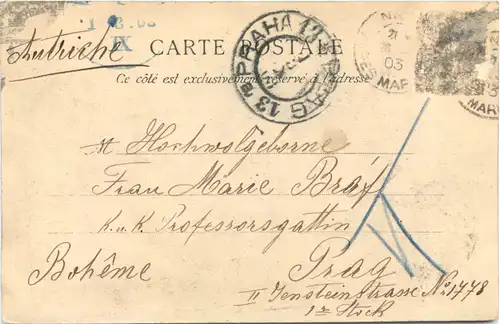 Autriche
IX
CARTE POSTALE
Ce côté est exclusivement réservé à l'adresse
PRAHA
PRAG 13
03
MAR
Hochwolgeborne
Frau Marie Bráf
K. u. K. Professorsgattin
Bohême
Prag
II Jensteinstrasse No. 1778
1r Stock